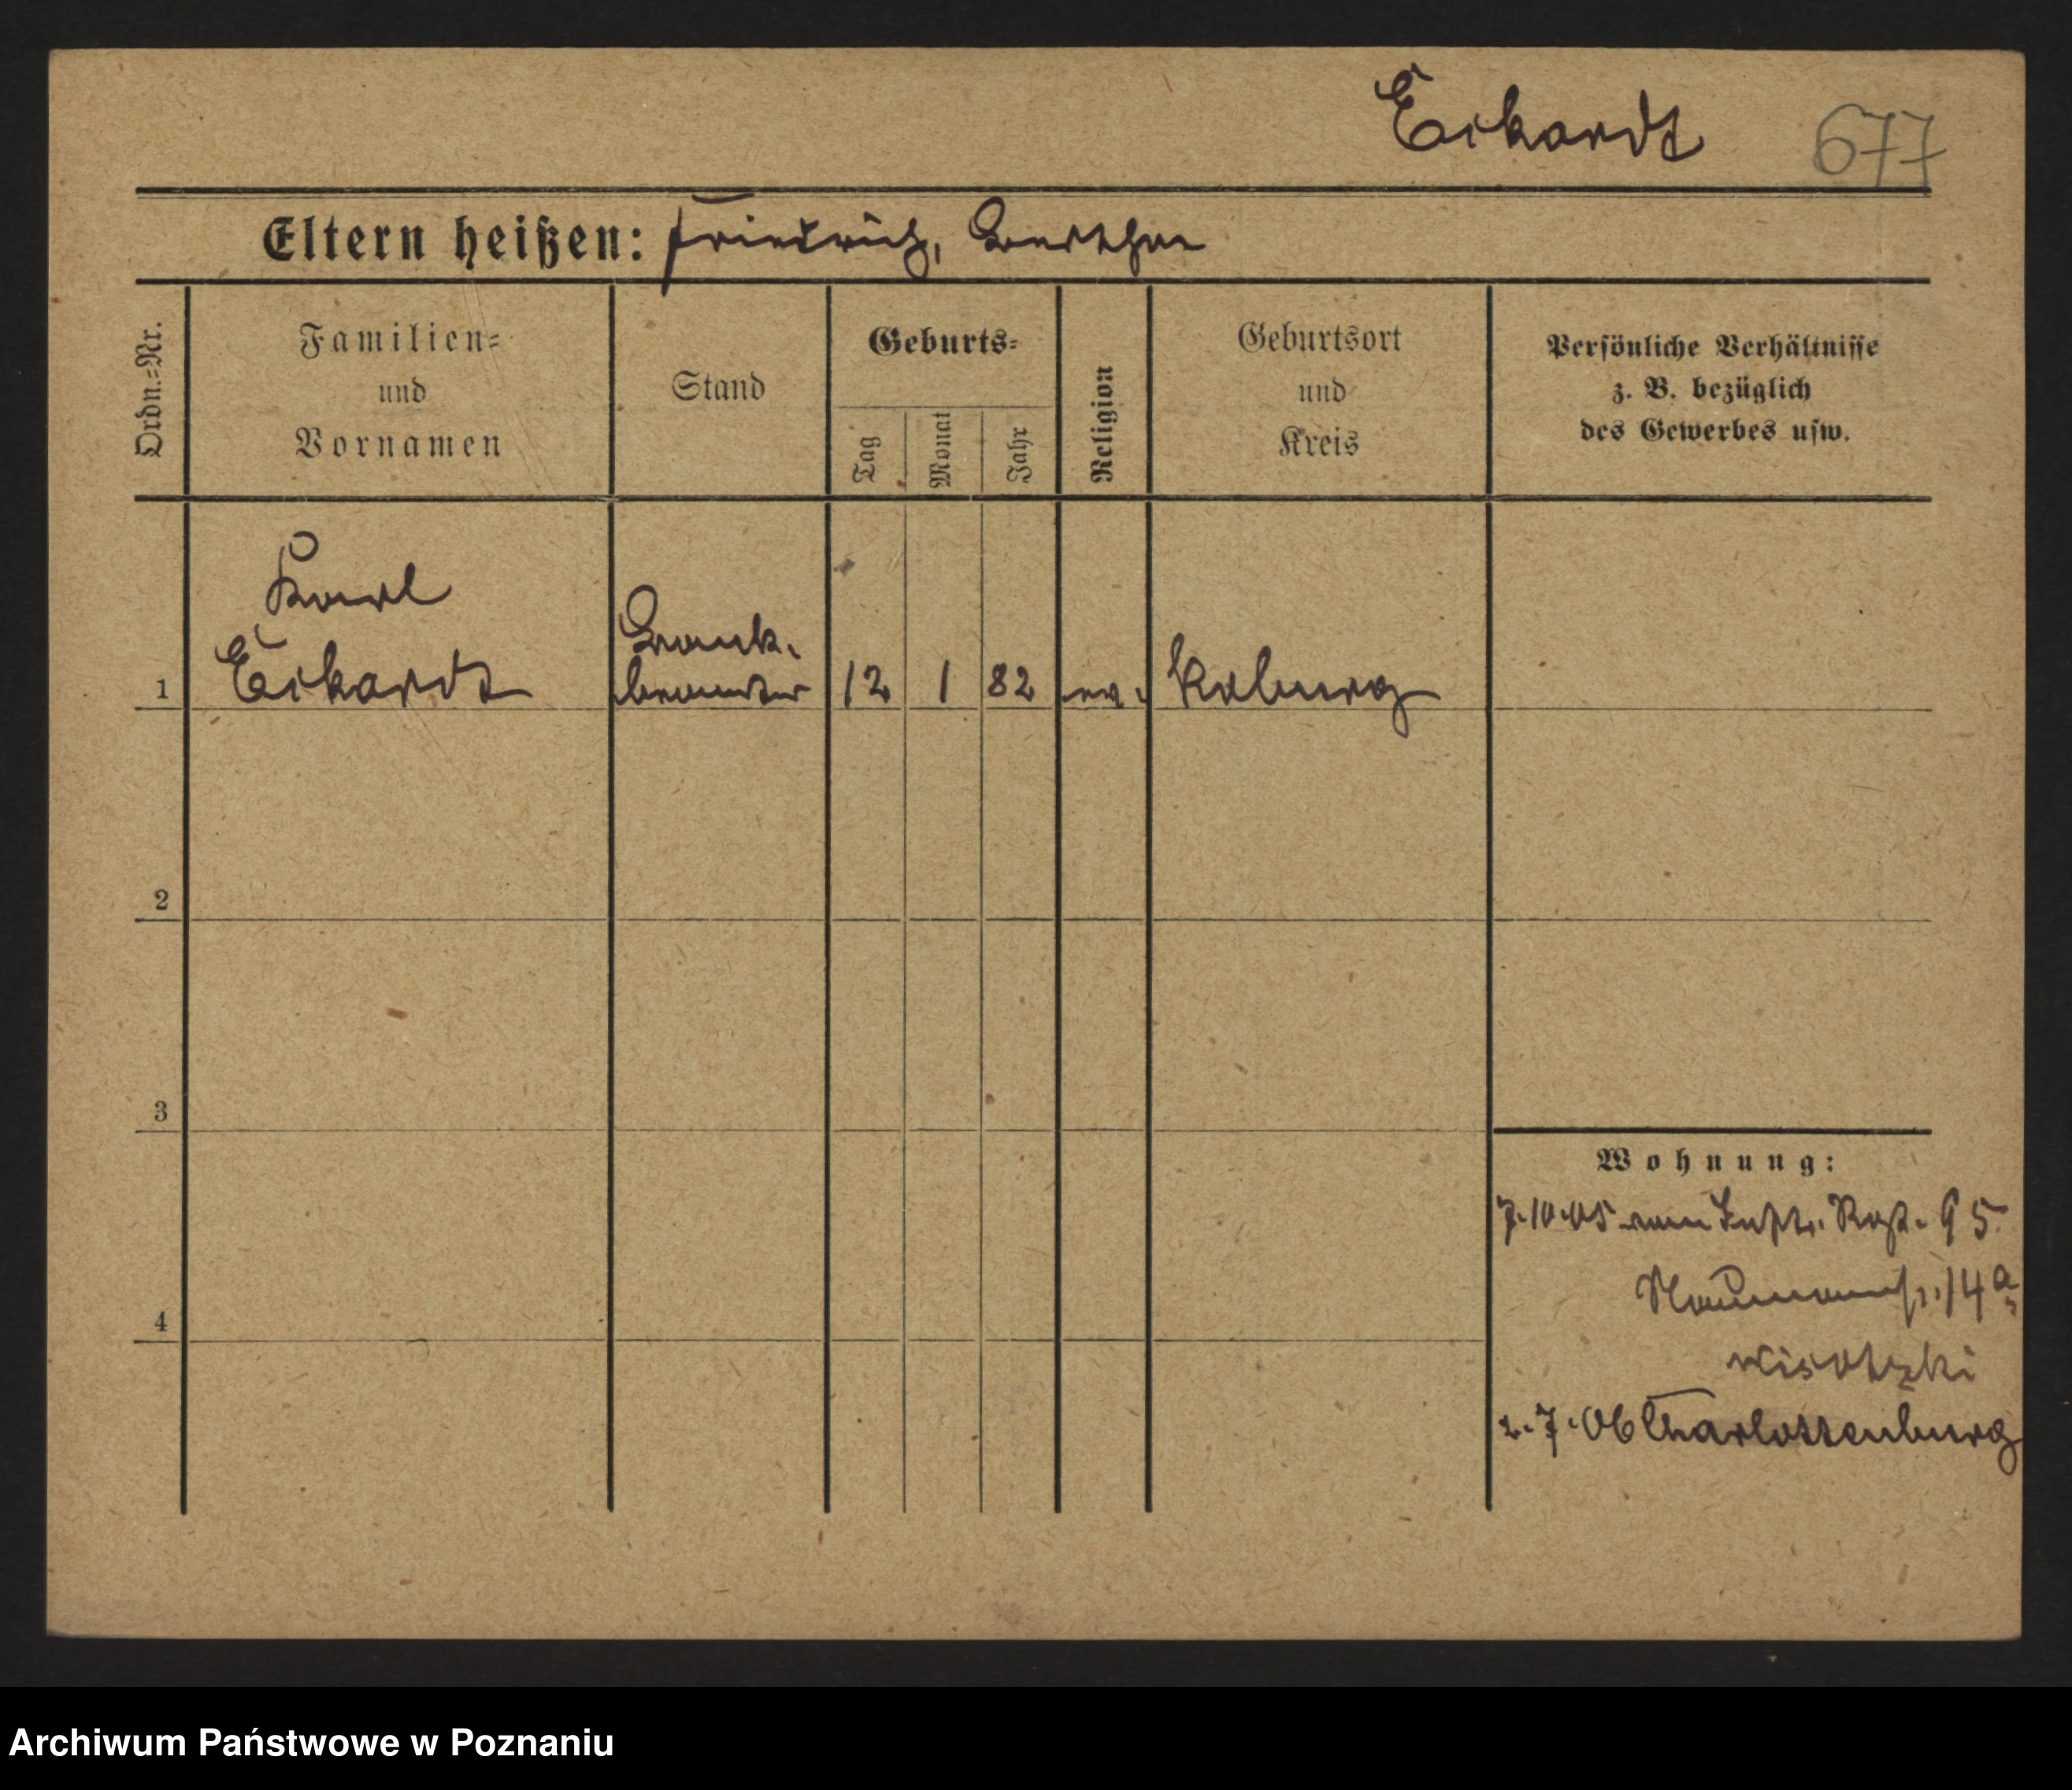 Eckardt 677
Eltern heißen: Friedrich, Bertha
Ordn.=Nr.
Familien=
und
Vornamen
Stand
Geburts=
Tag
Monat
Jahr
Religion
Geburtsort
und
Kreis
Persönliche Verhältnisse
z. B. bezüglich
des Gewerbes usw.
Karl
Eckardt
Bank.
beamter
1 12 1 82 ev. Koburg
2
3
4
Wohnung:
7.10.05 vom Inftr. Rgt. 95
Naumannstr. 14a
Wisotzki
2.7.06 Charlottenburg
Archiwum Państwowe w Poznaniu